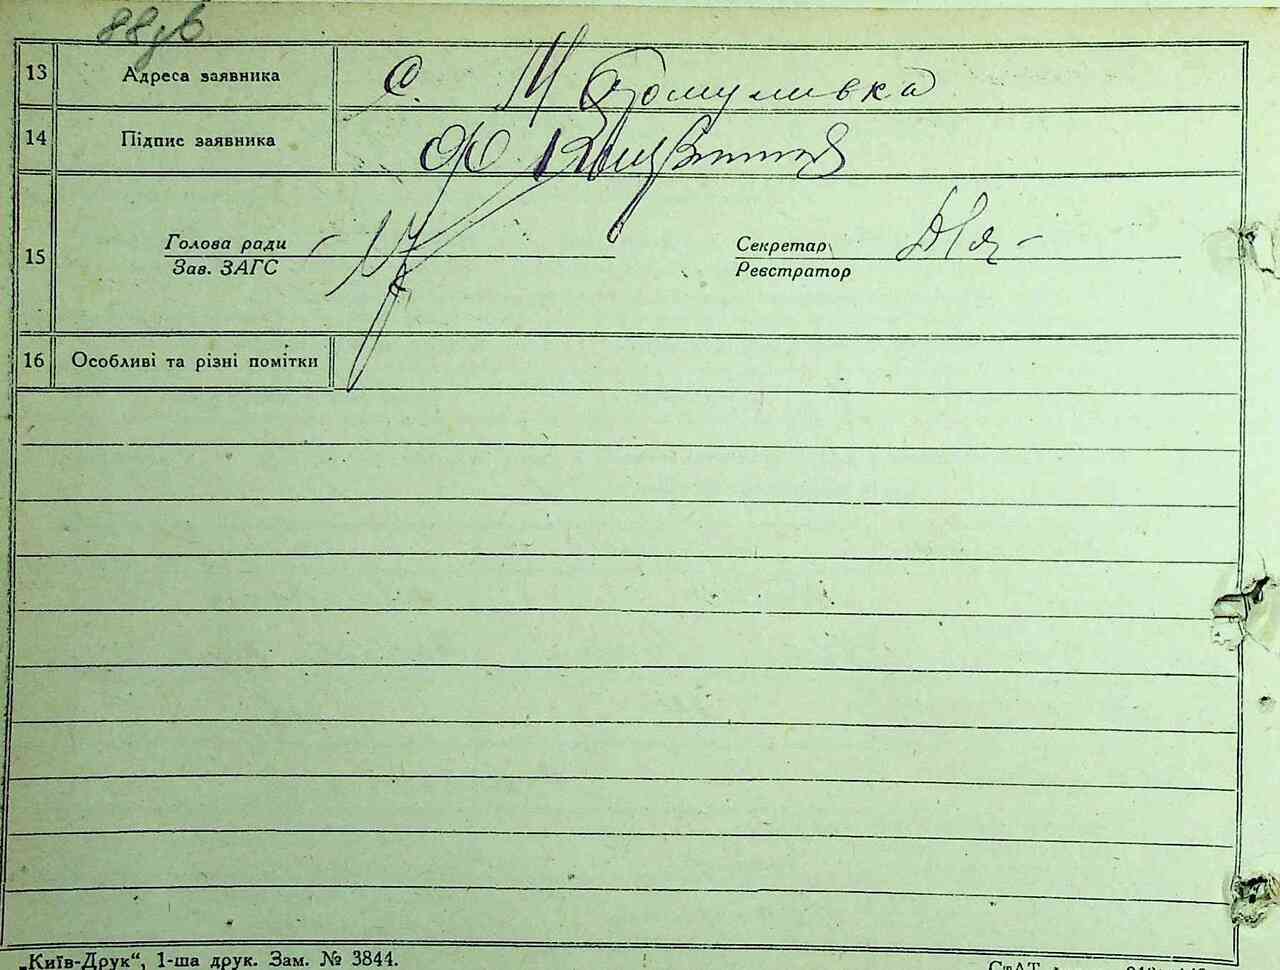 88 зв
13 Адреса заявника с. М Томуливка
14 Підпис заявника
Голова ради Секретар
15
Зав. ЗАГС Реєстратор
16 Особливі та різні помітки
„Київ-Друк“, 1-ша друк. Зам. № 3844.